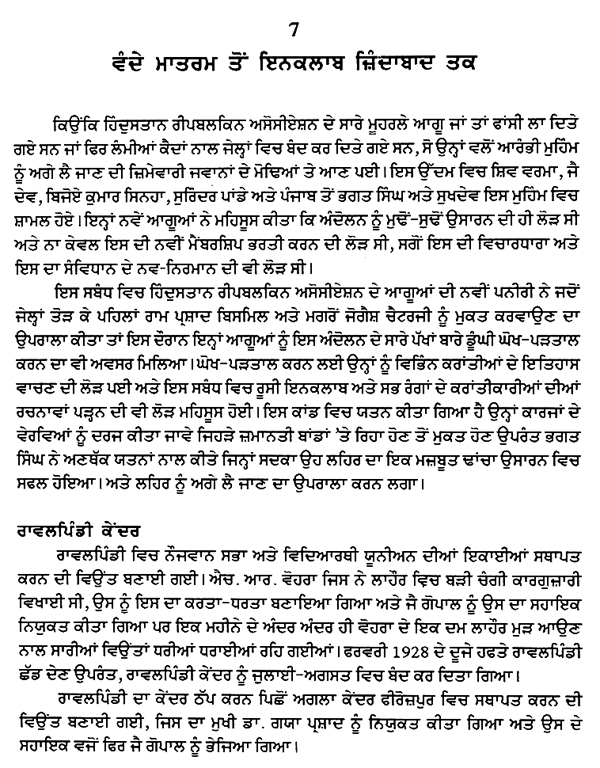 7
ਵੰਦੇ ਮਾਤਰਮ ਤੋਂ ਇਨਕਲਾਬ ਜ਼ਿੰਦਾਬਾਦ ਤਕ
ਕਿਉਂਕਿ ਹਿੰਦੁਸਤਾਨ ਰੀਪਬਲਕਿਨ ਅਸੋਸੀਏਸ਼ਨ ਦੇ ਸਾਰੇ ਮੂਹਰਲੇ ਆਗੂ ਜਾਂ ਤਾਂ ਫਾਂਸੀ ਲਾ ਦਿਤੇ
ਗਏ ਸਨ ਜਾਂ ਫਿਰ ਲੰਮੀਆਂ ਕੈਦਾਂ ਨਾਲ ਜੇਲ੍ਹਾਂ ਵਿਚ ਬੰਦ ਕਰ ਦਿਤੇ ਗਏ ਸਨ, ਸੋ ਉਨ੍ਹਾਂ ਵਲੋਂ ਆਰੰਭੀ ਮੁਹਿੰਮ
ਨੂੰ ਅਗੇ ਲੈ ਜਾਣ ਦੀ ਜ਼ਿਮੇਵਾਰੀ ਜਵਾਨਾਂ ਦੇ ਮੋਢਿਆਂ ਤੇ ਆਣ ਪਈ। ਇਸ ਉੱਦਮ ਵਿਚ ਸ਼ਿਵ ਵਰਮਾ, ਜੈ
ਦੇਵ, ਬਿਜੋਏ ਕੁਮਾਰ ਸਿਨਹਾ, ਸੁਰਿੰਦਰ ਪਾਂਡੇ ਅਤੇ ਪੰਜਾਬ ਤੋਂ ਭਗਤ ਸਿੰਘ ਅਤੇ ਸੁਖਦੇਵ ਇਸ ਮੁਹਿੰਮ ਵਿਚ
ਸ਼ਾਮਲ ਹੋਏ। ਇਨ੍ਹਾਂ ਨਵੇਂ ਆਗੂਆਂ ਨੇ ਮਹਿਸੂਸ ਕੀਤਾ ਕਿ ਅੰਦੋਲਨ ਨੂੰ ਮੁਢੋਂ-ਸੁਢੋਂ ਉਸਾਰਨ ਦੀ ਹੀ ਲੋੜ ਸੀ
ਅਤੇ ਨਾ ਕੇਵਲ ਇਸ ਦੀ ਨਵੀਂ ਮੈਂਬਰਸ਼ਿਪ ਭਰਤੀ ਕਰਨ ਦੀ ਲੋੜ ਸੀ, ਸਗੋਂ ਇਸ ਦੀ ਵਿਚਾਰਧਾਰਾ ਅਤੇ
ਇਸ ਦਾ ਸੰਵਿਧਾਨ ਦੇ ਨਵ-ਨਿਰਮਾਨ ਦੀ ਵੀ ਲੋੜ ਸੀ।
ਇਸ ਸਬੰਧ ਵਿਚ ਹਿੰਦੁਸਤਾਨ ਰੀਪਬਲਕਿਨ ਅਸੋਸੀਏਸ਼ਨ ਦੇ ਆਗੂਆਂ ਦੀ ਨਵੀਂ ਪਨੀਰੀ ਨੇ ਜਦੋਂ
ਜੇਲ੍ਹਾਂ ਤੋੜ ਕੇ ਪਹਿਲਾਂ ਰਾਮ ਪ੍ਰਸ਼ਾਦ ਬਿਸਮਿਲ ਅਤੇ ਮਗਰੋਂ ਜੋਗੇਸ਼ ਚੈਟਰਜੀ ਨੂੰ ਮੁਕਤ ਕਰਵਾਉਣ ਦਾ
ਉਪਰਾਲਾ ਕੀਤਾ ਤਾਂ ਇਸ ਦੌਰਾਨ ਇਨ੍ਹਾਂ ਆਗੂਆਂ ਨੂੰ ਇਸ ਅੰਦੋਲਨ ਦੇ ਸਾਰੇ ਪੱਖਾਂ ਬਾਰੇ ਡੂੰਘੀ ਘੋਖ-ਪੜਤਾਲ
ਕਰਨ ਦਾ ਵੀ ਅਵਸਰ ਮਿਲਿਆ। ਘੋਖ-ਪੜਤਾਲ ਕਰਨ ਲਈ ਉਨ੍ਹਾਂ ਨੂੰ ਵਿਭਿੰਨ ਕਰਾਂਤੀਆਂ ਦੇ ਇਤਿਹਾਸ
ਵਾਚਣ ਦੀ ਲੋੜ ਪਈ ਅਤੇ ਇਸ ਸਬੰਧ ਵਿਚ ਰੂਸੀ ਇਨਕਲਾਬ ਅਤੇ ਸਭ ਰੰਗਾਂ ਦੇ ਕਰਾਂਤੀਕਾਰੀਆਂ ਦੀਆਂ
ਰਚਨਾਵਾਂ ਪੜ੍ਹਨ ਦੀ ਵੀ ਲੋੜ ਮਹਿਸੂਸ ਹੋਈ। ਇਸ ਕਾਂਡ ਵਿਚ ਯਤਨ ਕੀਤਾ ਗਿਆ ਹੈ ਉਨ੍ਹਾਂ ਕਾਰਜਾਂ ਦੇ
ਵੇਰਵਿਆਂ ਨੂੰ ਦਰਜ ਕੀਤਾ ਜਾਵੇ ਜਿਹੜੇ ਜ਼ਮਾਨਤੀ ਬਾਂਡਾਂ 'ਤੇ ਰਿਹਾ ਹੋਣ ਤੋਂ ਮੁਕਤ ਹੋਣ ਉਪਰੰਤ ਭਗਤ
ਸਿੰਘ ਨੇ ਅਣਥੱਕ ਯਤਨਾਂ ਨਾਲ ਕੀਤੇ ਜਿਨ੍ਹਾਂ ਸਦਕਾ ਉਹ ਲਹਿਰ ਦਾ ਇਕ ਮਜ਼ਬੂਤ ਢਾਂਚਾ ਉਸਾਰਨ ਵਿਚ
ਸਫਲ ਹੋਇਆ। ਅਤੇ ਲਹਿਰ ਨੂੰ ਅਗੇ ਲੈ ਜਾਣ ਦਾ ਉਪਰਾਲਾ ਕਰਨ ਲਗਾ।
ਰਾਵਲਪਿੰਡੀ ਕੇਂਦਰ
ਰਾਵਲਪਿੰਡੀ ਵਿਚ ਨੌਜਵਾਨ ਸਭਾ ਅਤੇ ਵਿਦਿਆਰਥੀ ਯੂਨੀਅਨ ਦੀਆਂ ਇਕਾਈਆਂ ਸਥਾਪਤ
ਕਰਨ ਦੀ ਵਿਉਂਤ ਬਣਾਈ ਗਈ। ਐਚ. ਆਰ. ਵੋਹਰਾ ਜਿਸ ਨੇ ਲਾਹੌਰ ਵਿਚ ਬੜੀ ਚੰਗੀ ਕਾਰਗੁਜ਼ਾਰੀ
ਵਿਖਾਈ ਸੀ, ਉਸ ਨੂੰ ਇਸ ਦਾ ਕਰਤਾ-ਧਰਤਾ ਬਣਾਇਆ ਗਿਆ ਅਤੇ ਜੈ ਗੋਪਾਲ ਨੂੰ ਉਸ ਦਾ ਸਹਾਇਕ
ਨਿਯੁਕਤ ਕੀਤਾ ਗਿਆ ਪਰ ਇਕ ਮਹੀਨੇ ਦੇ ਅੰਦਰ ਅੰਦਰ ਹੀ ਵੋਹਰਾ ਦੇ ਇਕ ਦਮ ਲਾਹੌਰ ਮੁੜ ਆਉਣ
ਨਾਲ ਸਾਰੀਆਂ ਵਿਉਂਤਾਂ ਧਰੀਆਂ ਧਰਾਈਆਂ ਰਹਿ ਗਈਆਂ। ਫਰਵਰੀ 1928 ਦੇ ਦੂਜੇ ਹਫਤੇ ਰਾਵਲਪਿੰਡੀ
ਛੱਡ ਦੇਣ ਉਪਰੰਤ, ਰਾਵਲਪਿੰਡੀ ਕੇਂਦਰ ਨੂੰ ਜੁਲਾਈ-ਅਗਸਤ ਵਿਚ ਬੰਦ ਕਰ ਦਿਤਾ ਗਿਆ।
ਰਾਵਲਪਿੰਡੀ ਦਾ ਕੇਂਦਰ ਠੱਪ ਕਰਨ ਪਿਛੋਂ ਅਗਲਾ ਕੇਂਦਰ ਫੀਰੋਜ਼ਪੁਰ ਵਿਚ ਸਥਾਪਤ ਕਰਨ ਦੀ
ਵਿਉਂਤ ਬਣਾਈ ਗਈ, ਜਿਸ ਦਾ ਮੁਖੀ ਡਾ. ਗਯਾ ਪ੍ਰਸ਼ਾਦ ਨੂੰ ਨਿਯੁਕਤ ਕੀਤਾ ਗਿਆ ਅਤੇ ਉਸ ਦੇ
ਸਹਾਇਕ ਵਜੋਂ ਫਿਰ ਜੈ ਗੋਪਾਲ ਨੂੰ ਭੇਜਿਆ ਗਿਆ।